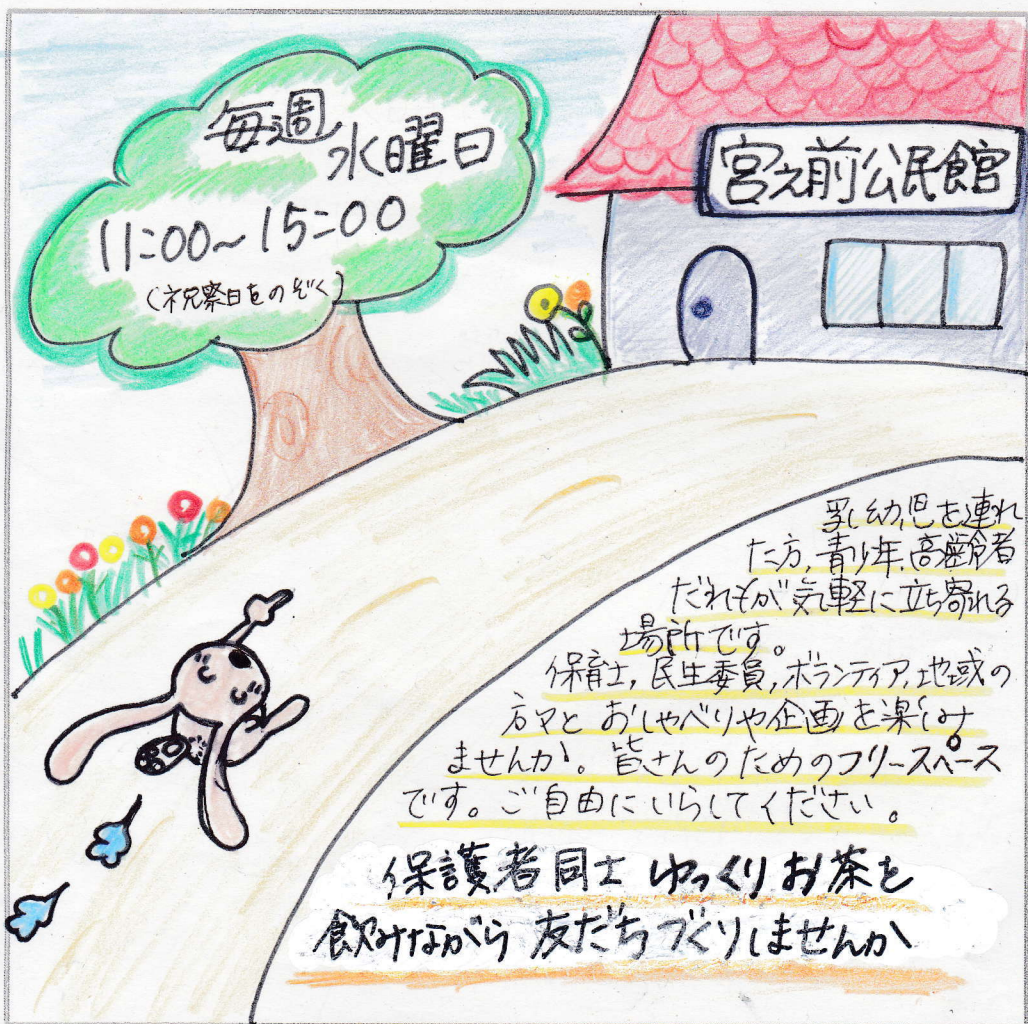 毎週
水曜日
11:00~15:00
(祝祭日をのぞく)
宮え前公民館
乳幼児を連れ
た方,青少年,高齢者
だれもが気軽に立ち寄れる
場所です。
保育士,民生委員,ボランティア,地域の
方々とおしゃべりや企画を楽しみ
ませんか。皆さんのためのフリースペース
です。ご自由にいらしてください。
保護者同士ゆっくりお茶を
飲みながら友だちづくりしませんか